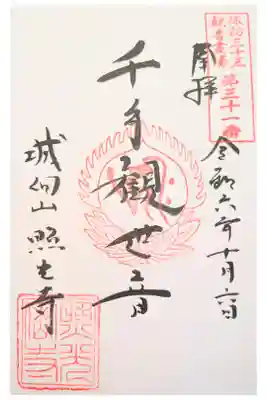 諏訪三十三
観音霊場
第三十一番
奉拝
令和六年十月
千手観世音
城向山 照光寺
照光寺